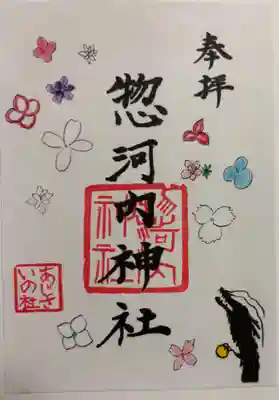 奉拝
惣河内神社
惣河内神社
あじさいの杜